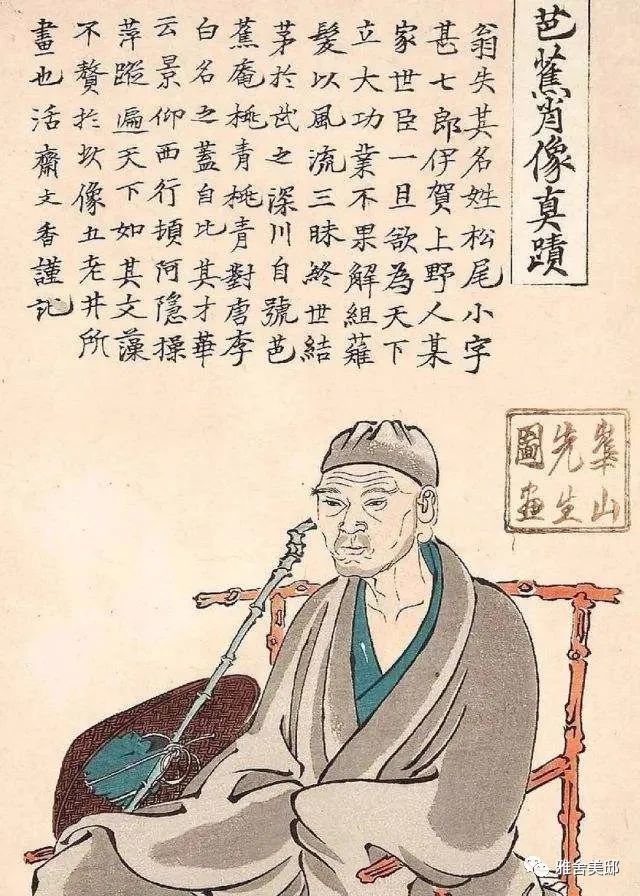 芭蕉肖像真蹟
翁失其名姓松尾小字
甚七郎伊賀上野人某
家世臣一旦欲為天下
立大功業不果解組薙
髮以風流三昧終世結
茅於武之深川自號芭
蕉庵桃青桃青對唐李
白名之蓋自比其才華
云景仰西行頓阿隱操
萍蹤遍天下如其文藻
不贅於像五老井所
畫也活齋文香謹記
崋山
先生
圖畫
雅舍美邸